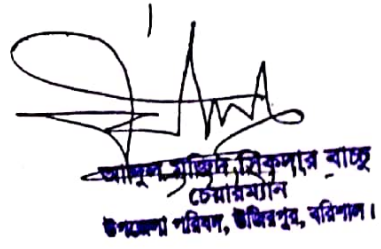 আব্দুল মজিদ সিকদার বাচ্চু
চেয়ারম্যান
উপজেলা পরিষদ, উজিরপুর, বরিশাল।